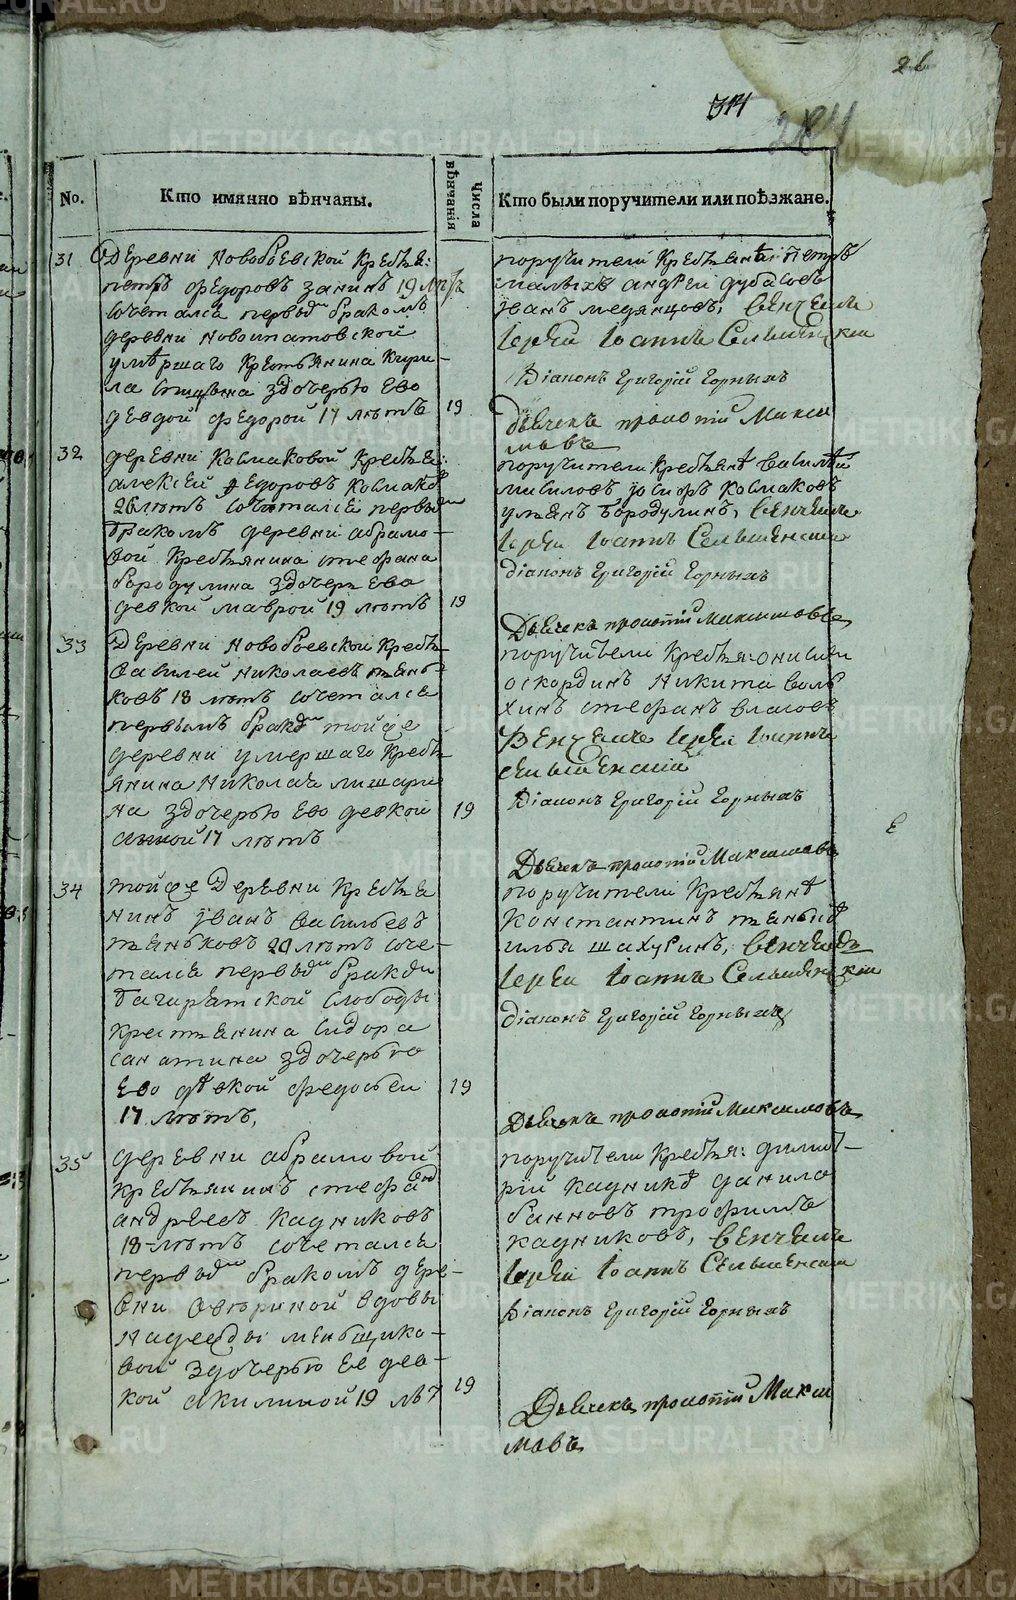 26
314
284
No.
Кто имянно вѣнчаны.
Числа вѣнчанія
Кто были поручители или поѣзжане.
31
Деревни Новобоевской Крестья:
петръ федоровъ занинъ 19 лѣтъ
сочетался первым бракомъ
деревни новоипатовской
умершаго Крестьянина Кири-
ла здочерью Ево
девдой федорой 17 лѣтъ
19
поручители Крестьяне: петръ
малыхъ андрей дубасовъ
иванъ медянцовъ, венчалъ
Іерей Іоаннъ Селышенский
Діаконъ Григорій Горныхъ
Дьячекъ прокопій Макси
мовъ
32
деревни Колмаковой Крестья:
алексей федоровъ Колмаков
26 лѣтъ сочетался первым
бракомъ деревни абрамо-
вой Крестьянина стефана
бородулина здочерью Ево
девкой маврой 19 лѣтъ
19
поручители Крестьяне василей
иосифъ Колмаковъ
бородулинъ, венчалъ
Іерей Іоаннъ Селышенский
Діаконъ Григорій Горныхъ
Дьячекъ прокопій Максимовъ
33
Деревни Новобоевской Крестья
василей николаевъ пань-
ковъ 18 лѣтъ сочетался
первымъ браком тойже
деревни умершаго Кресть-
янина Николая
на здочерью Ево девкой
анной 17 лѣтъ
19
поручители Крестья:
оскординъ Никита воло
хинъ стефанъ власовъ
Венчалъ Іерей Іоаннъ
Селышенский
Діаконъ Григорій Горныхъ
Дьячекъ прокопій Максимовъ
34
тойже Деревни Крестья
нинъ иванъ васильевъ
паньковъ 20 лѣтъ соче-
тался первым бракомъ
багаряцкой слободы
крестьянина сидора
санатина здочерью
Ево дѣвкой федосьей
17 лѣтъ,
19
поручители Крестьяне
константинъ паньков
илья шахуринъ, венчалъ
Іерей Іоаннъ Селышенский
Діаконъ Григорій Горныхъ
Дьячекъ прокопій Максимовъ
35
деревни абрамовой
крестьянинъ стефанъ
андреевъ Кадниковъ
18 лѣтъ сочетался
первым бракомъ дере-
вни вдовы
надежды меньщико-
вой здочерью Ее дев-
кой Акилиной 19 лѣт
19
поручители Крестья: димит-
рий Кадников данило
банновъ трофимъ
кадниковъ, венчалъ
Іерей Іоаннъ Селышенский
Діаконъ Григорій Горныхъ
Дьячекъ прокопій Макси
мовъ
METRIKI.GASO-URAL.RU